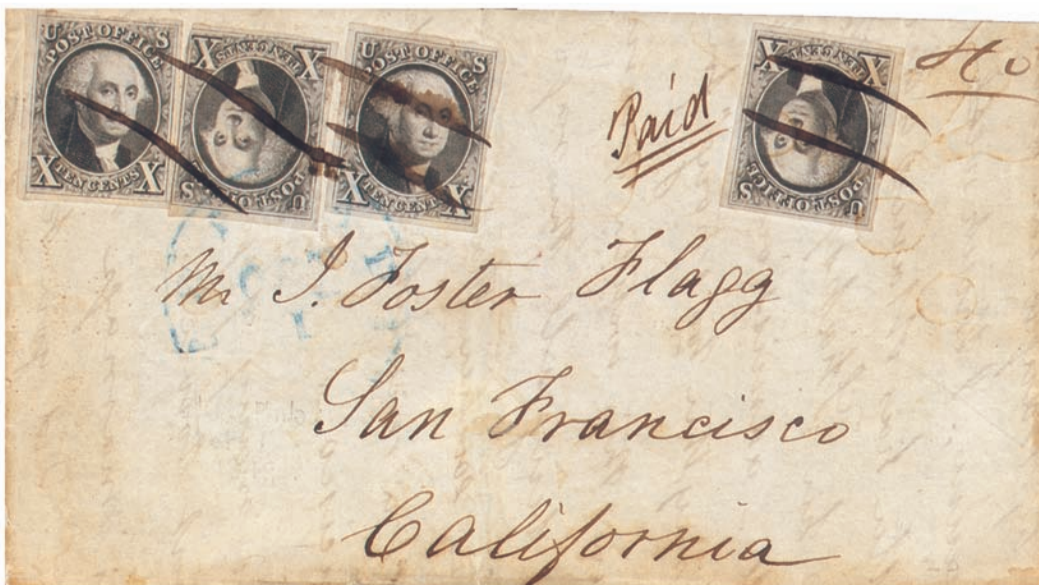 U S
POST OFFICE
X TEN CENTS X
U S
POST OFFICE
X TEN CENTS X
U S
POST OFFICE
X TEN CENTS X
U S
POST OFFICE
X TEN CENTS X
Paid
40
Mr J. Foster Flagg
San Francisco
California